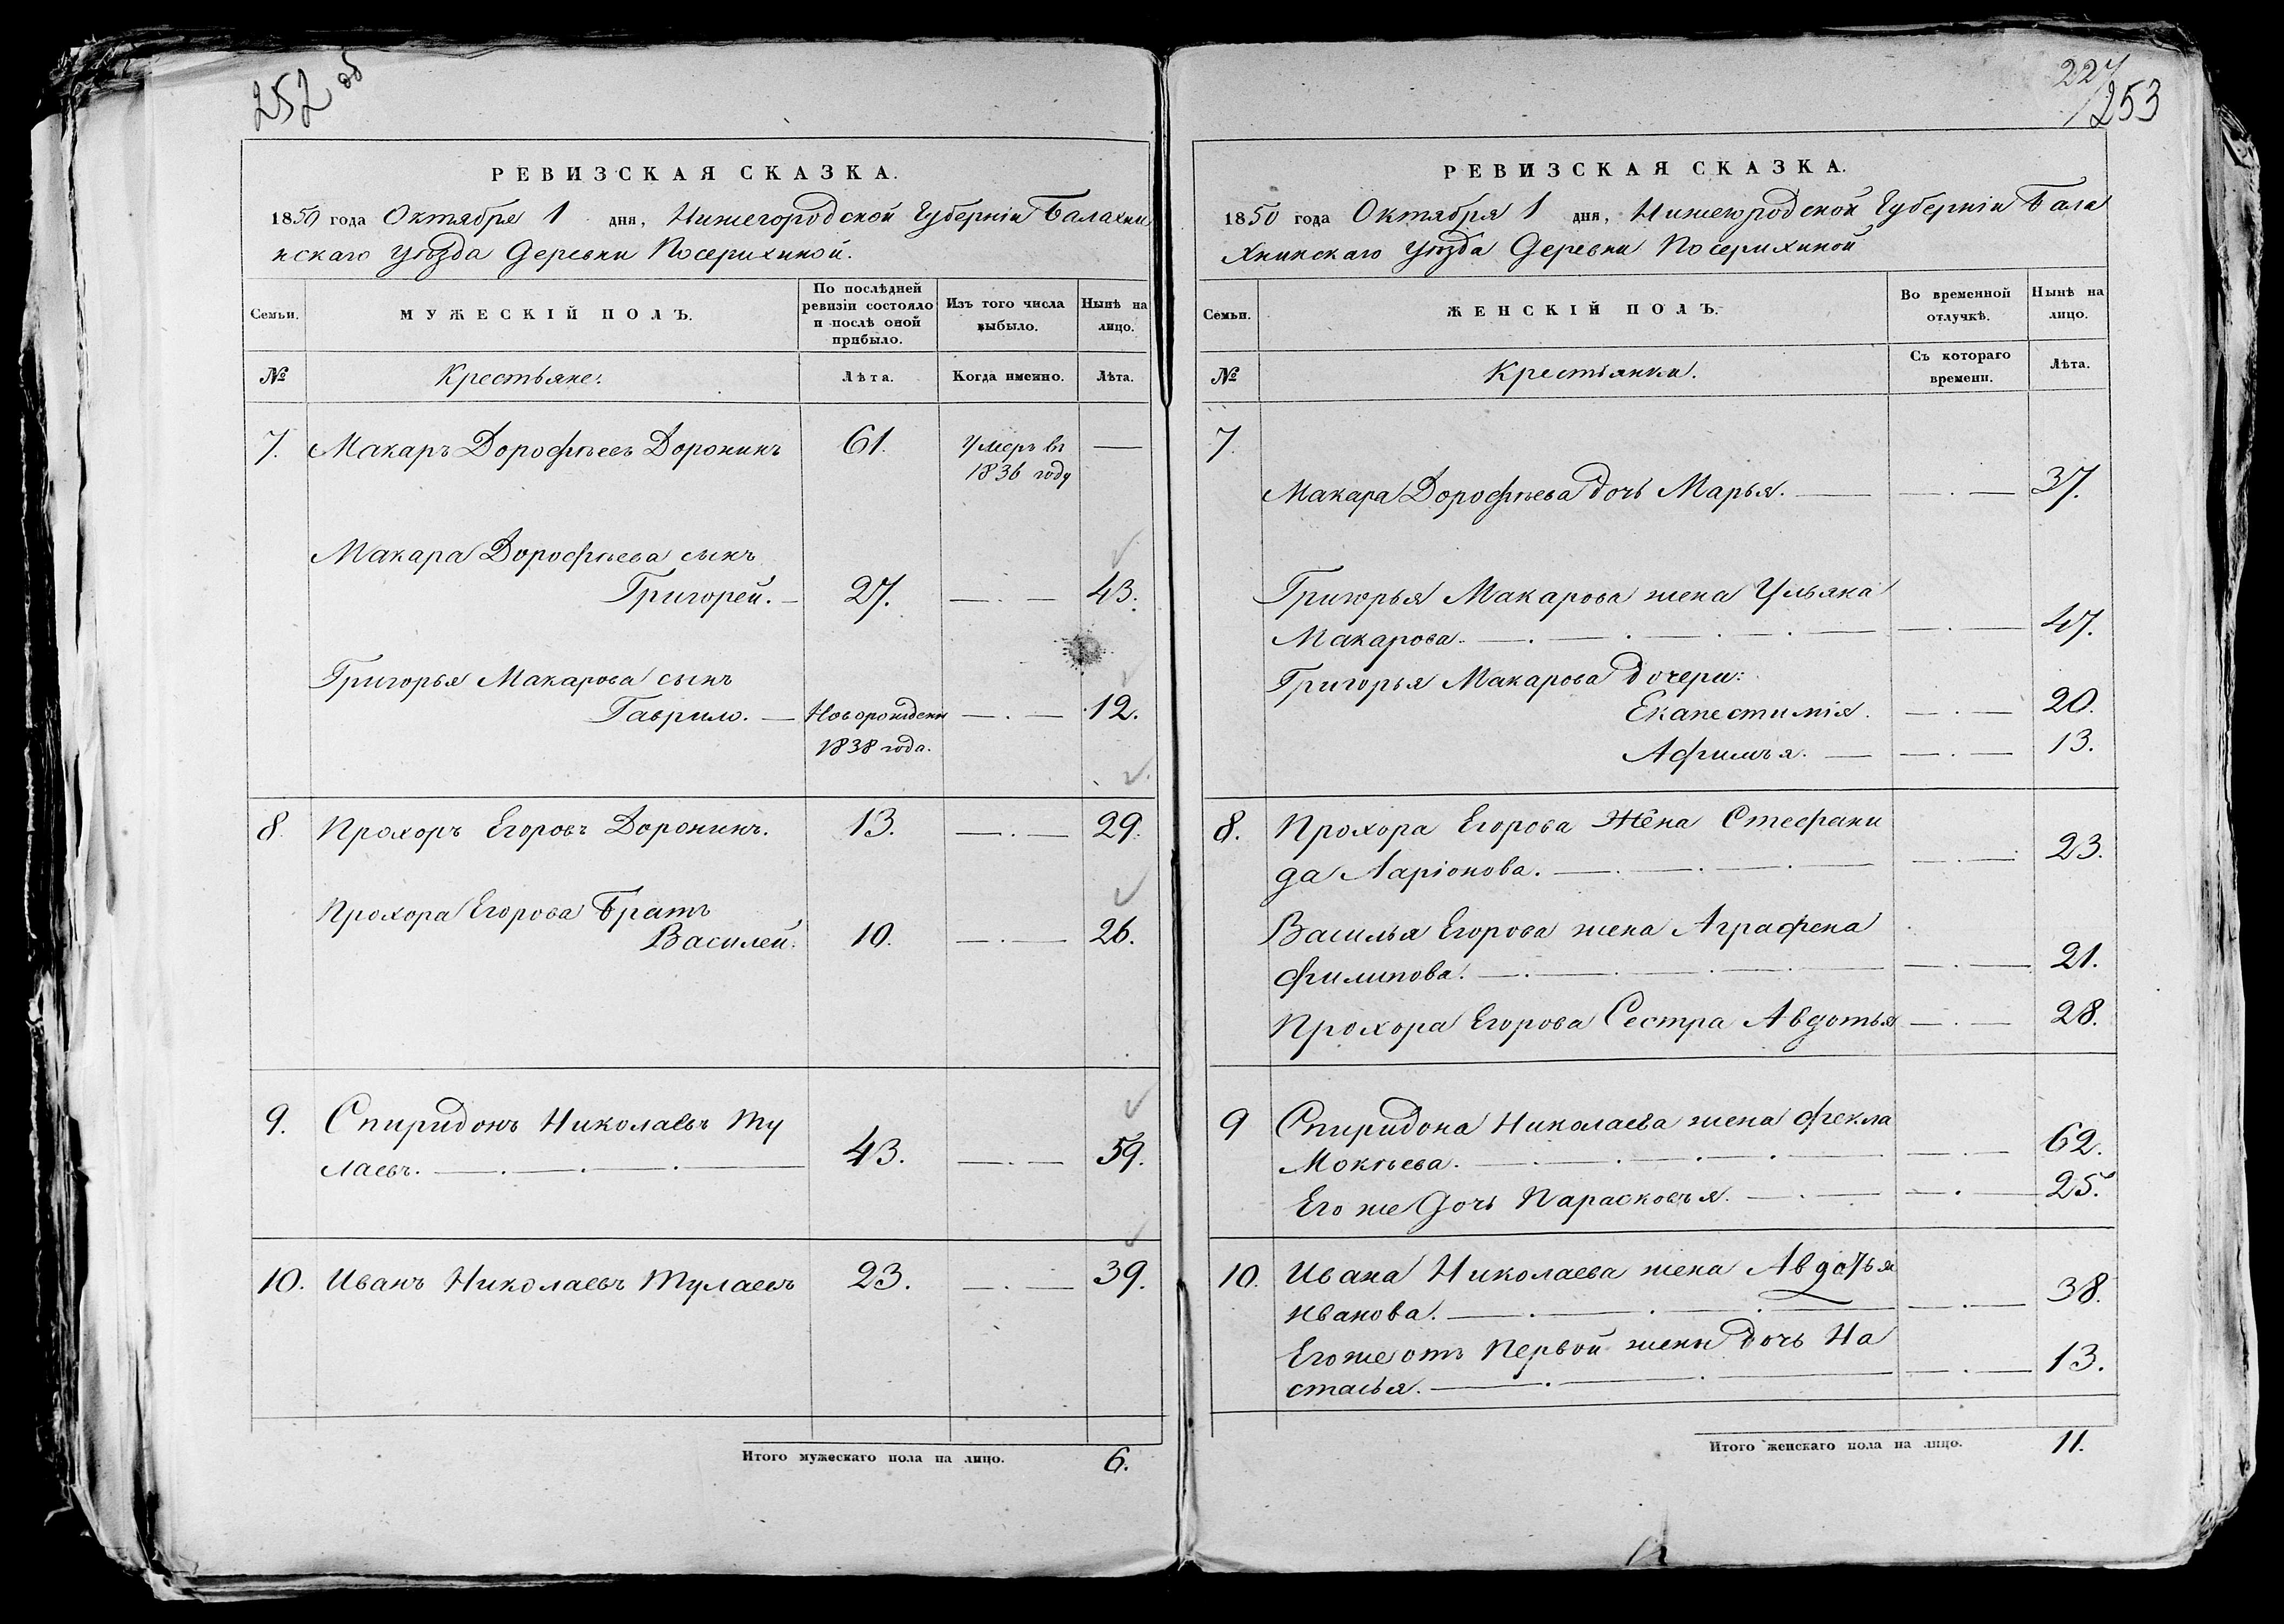 252 об
РЕВИЗСКАЯ СКАЗКА.
1850 года Октября 1 дня, Нижегородской Губерніи Балахни
нскаго Уѣзда Деревни Посерихиной.
Семьи.
МУЖЕСКІЙ ПОЛЪ.
По послѣдней
ревизіи состояло
и послѣ оной
прибыло.
Изъ того числа
выбыло.
Нынѣ на
лицо.
№ Крестьяне: Лѣта. Когда именно. Лѣта.
7. Макаръ Дорофѣевъ Доронинъ 61. умеръ въ —
1836 году
Макара Дорофѣева сынъ
Григорей. — 27. — . — 43.
Григорья Макарова сынъ
Гаврило. — Новорожденн — . — 12.
1838 года.
8. Прохоръ Егоровъ Доронинъ. 13. — . — 29.
Прохора Егорова Братъ
Василей. 10. — . — 26.
9. Спиридонъ Николаевъ Ту
лаевъ. — . — . — . — 43. — . — 59.
10. Иванъ Николаевъ Тулаевъ 23. — . — 39.
Итого мужескаго пола на лицо. 6.
227
253
РЕВИЗСКАЯ СКАЗКА.
1850 года Октября 1 дня, Нижегородской Губерніи Бала
хнинскаго Уѣзда Деревни Посерихиной
Семьи.
ЖЕНСКІЙ ПОЛЪ.
Во временной
отлучкѣ.
Нынѣ на
лицо.
№ Крестьянки. Съ котораго
времени.
Лѣта.
7.
Макара Дорофѣева дочь Марья. — — . — 37.
Григорья Макарова жена Ульяна
Макарова. — . — . — . — . — — . — 47.
Григорья Макарова дочери:
Екапестимія. — . — 20.
Афимья. — — . — 13.
8. Прохора Егорова Жена Стефани
да Ларіонова. — . — . — . — — . — 23.
Василья Егорова жена Аграфена
Филипова. — . — . — . — . — — . — 21.
Прохора Егорова Сестра Авдотья — . — 28.
9 Спиридона Николаева жена Фекла
Мокѣева. — . — . — . — . — — . — 62.
Его же Дочь Парасковья. — . — — . — 25.
10. Ивана Николаева жена Авдотья
Иванова. — . — . — . — — . — 38.
Егоже отъ Первой жены дочь На
стасья. — . — . — — . — 13.
Итого женскаго пола на лицо. 11.